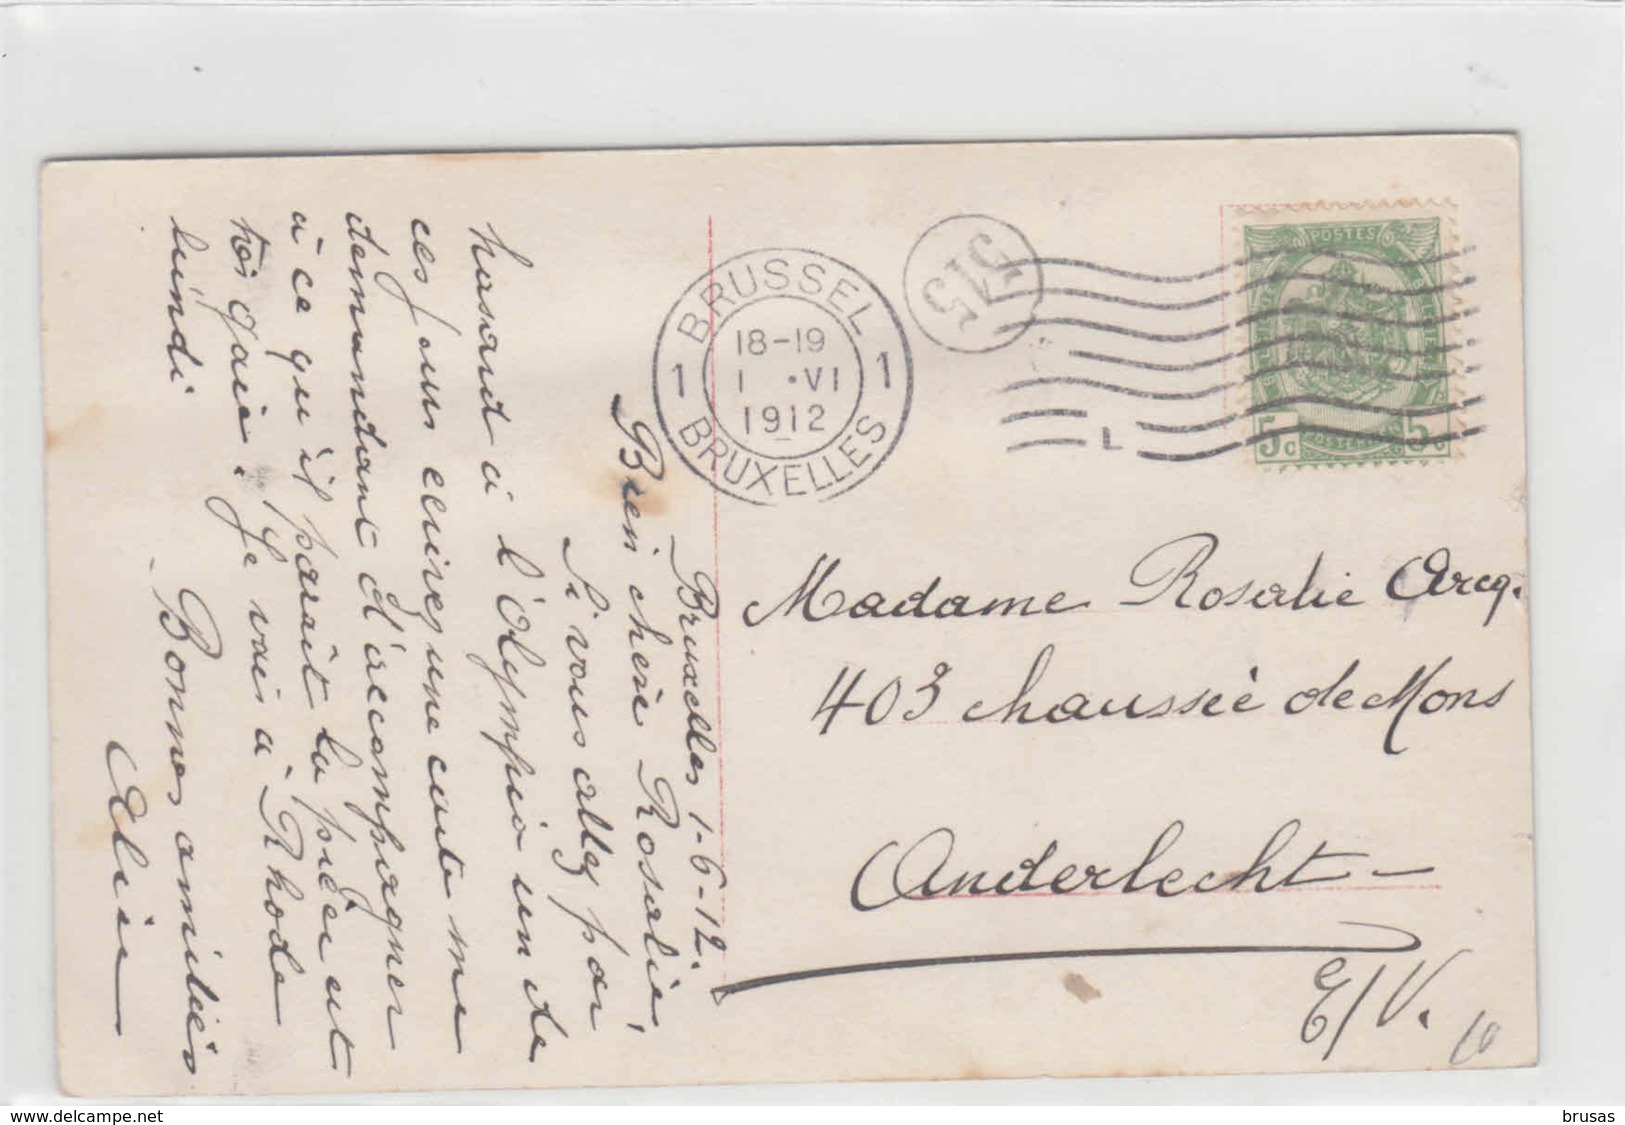 Bruxelles 1-6-12.
Bien chère Rosalie,
Si vous allez par
hasard à l'Olympia un de
ces jours écrivez une carte me
demandant d'accompagner
à ce qu'il paraît la pièce est
très gaie. Je vais à Rhode
lundi
Bonnes amitiés
BRUSSEL
18-19
1 ·VI
1912
1 1
BRUXELLES
515
L
POSTES
5c 5c
POSTERIJEN
Madame Rosalie Arcq.
403 chaussée de Mons
Anderlecht
E/V.
10
www.delcampe.net
brusas